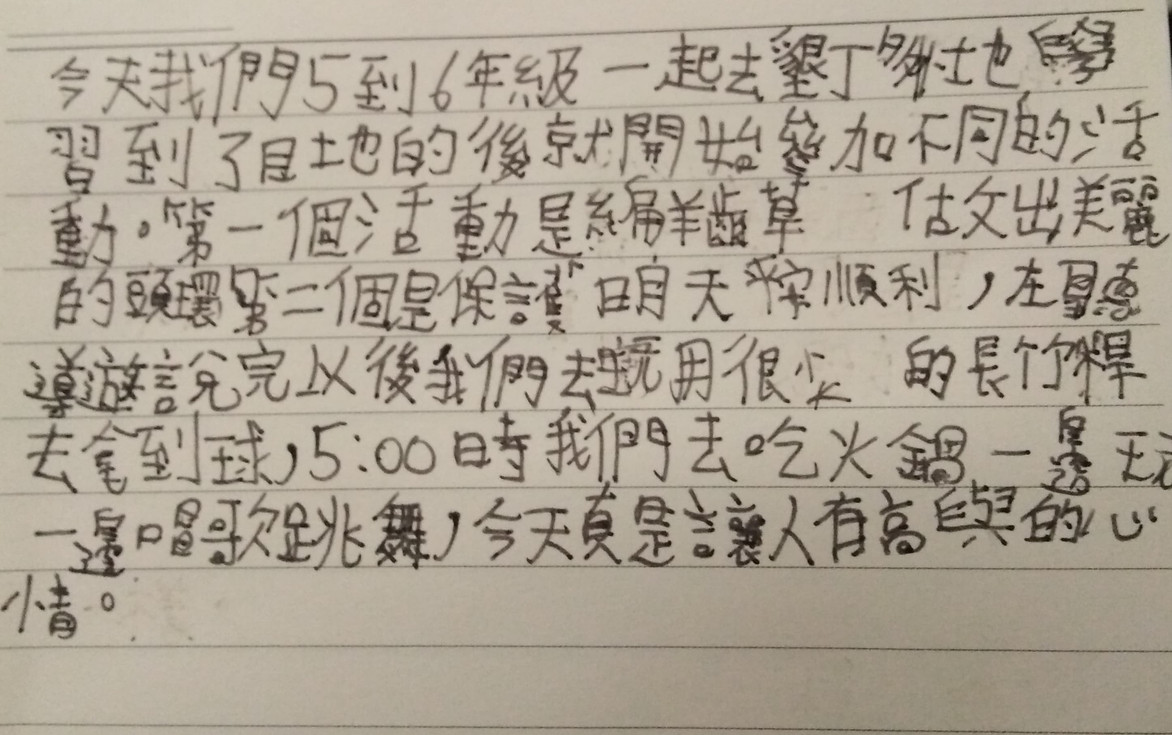 今天我們5到6年級一起去墾丁多納士也學
習到了目土地的後就開始參加不同的活
動。第一個活動是編羊齒草 估文出美麗
的頭環第二個是保護 明天平安順利,在聽
導遊說完以後我們去玩用很尖 的長竹桿
去拿到球,5:00時我們去吃火鍋一邊玩
一邊唱歌跳舞,今天真是讓人有高興的心
情。